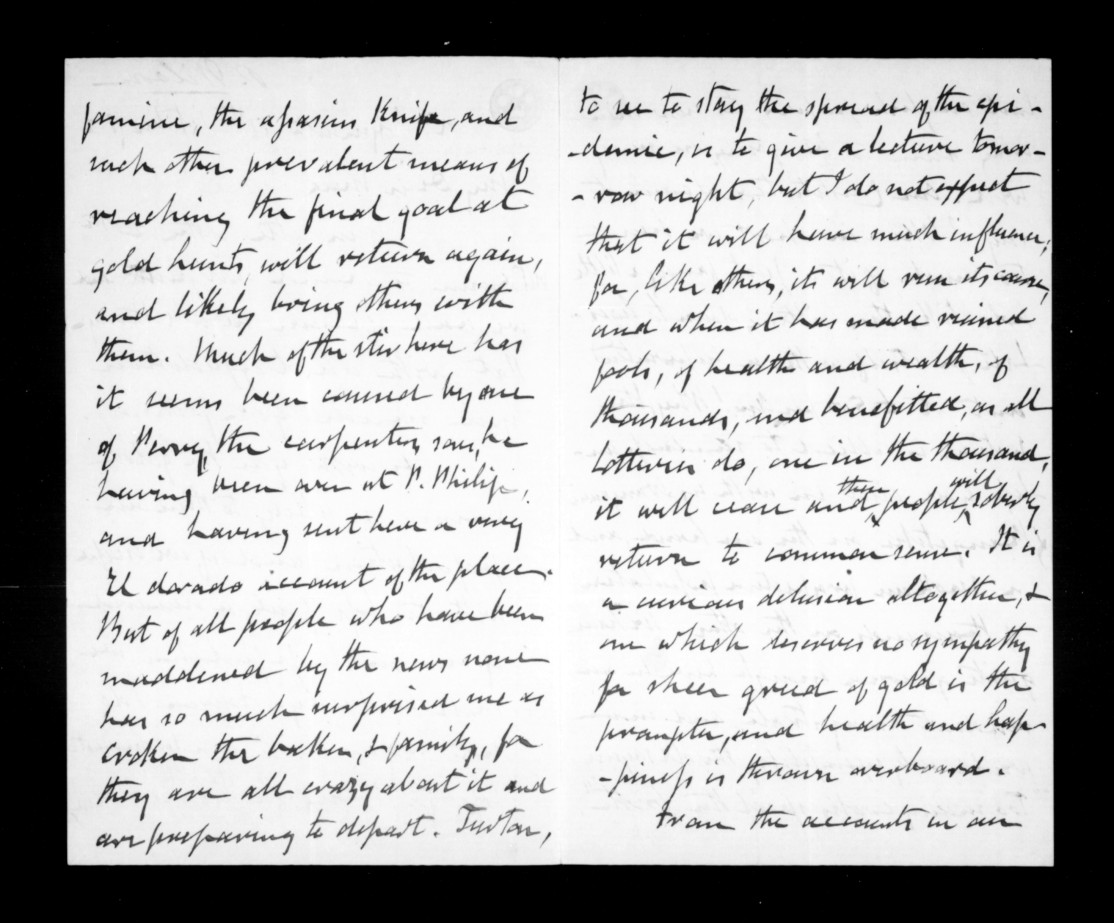 famine, the assassins Knife, and
such other prevalent means of
reaching the final goal at
gold hunts, will return again,
and likely bring others with
them. Much of the stir here has
it seems been caused by one
of Perry, the carpenters sons, he
having been over at P. Philip,
and having sent here a very
El dorado account of the place.
But of all people who have been
maddened by the news none
has so much surprised me as
Croken the baker, & family, for
they are all crazy about it and
are preparing to depart. Turton,
to see to stay the spread of the epi-
-demic, is to give a lecture tomor-
-row night, but I do not expect
that it will have much influence,
for, like others, it will run its course,
and when it has made ruined
fools, of health and wealth, of
thousands, and benefitted, as all
Lotteries do, one in the thousand,
it will cease and then people, will soberly
return to common sense. It is
a curious delusion altogether, &
one which deserves no sympathy
for sheer greed of gold is the
prompter, and health and hap-
-piness is thrown overboard.
From the accounts in our